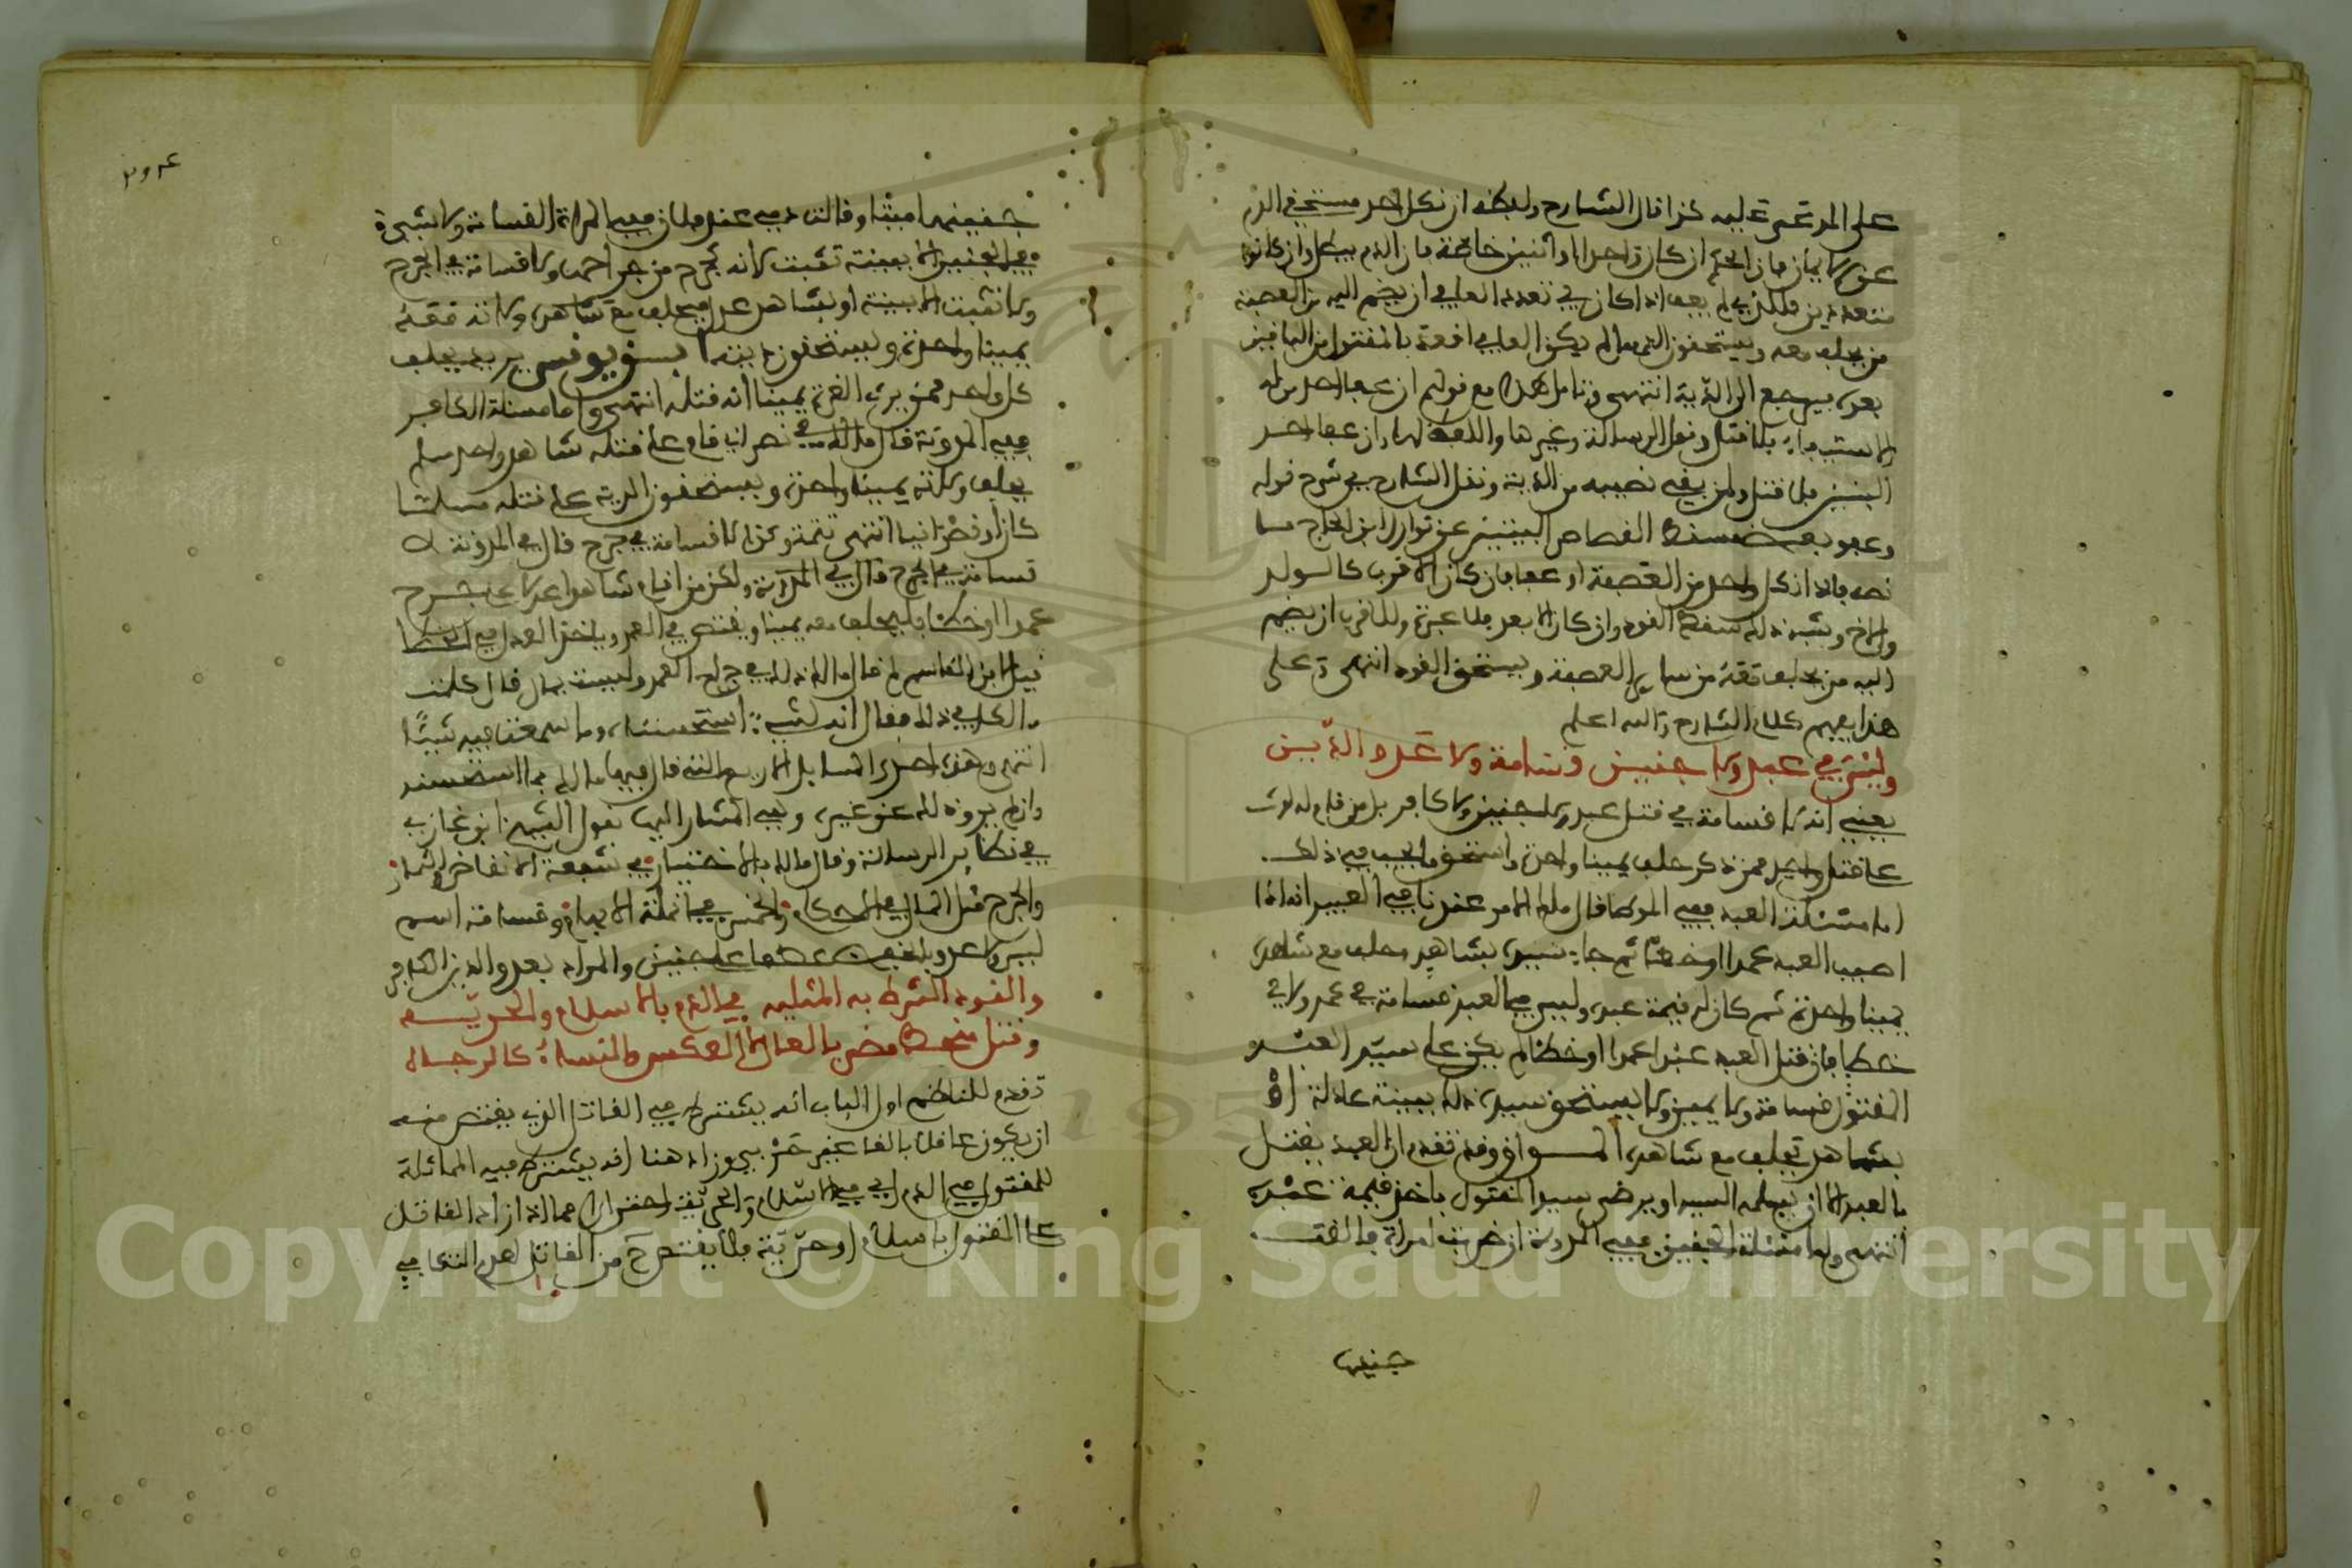 على المدعى عليه كذا قال الشارح ولبعضه ان نكل احد مستحقي الدم
عن الايمان فان الحكم ان كان واحدا او اثنين خاصة فان الدم يبطل وان كانوا
متعددين ولكن لم يعف اذا كان في تعدد العلي ان يضم اليه من العصبة
من يحلف معه ويستحقون الدم ما لم يكن العلي اقعد بالمقتول من الباقين
بعد فيرجع الى الدية انتهى وتامل هذا مع قولهم ان عفا احد من
الاستيفاء فلا قتل ونقل الرسالة وغيرها واللفظ لها وان عفا احد
البنين فلا قتل ولمن بقي نصيبه من الدية ونقل الشارح في شرح قوله
وعفو بعض مسقط القصاص البيتين عن نوازل ابن الحاج ما
نصه فاذا نكل واحد من العصبة او عفا فان كان الاقرب كالولد
والاخ وشبه ذلك سقط القود وان كان الابعد فلا عبرة وللاقرب ان يضم
اليه من يحلف ثقة من ساير العصبة ويستحق القود انتهى وعلى
هذا يفهم كلام الشارح والله اعلم
وليس في عبد ولا جنين قسامة ولا عدو الدين
يعني انه لا قسامة في قتل عبد ولا جنين ولا كافر بل من قام له لوث
على قتل واحد ممن ذكر حلف يمينا واحدة واستحق ما يجب في ذلك
اما مسئلة العبد ففي الموطا قال مالك الامر عندنا في العبيد انه اذا
اصيب العبد عمدا او خطئا ثم جاء سيده بشاهد حلف مع شاهده
يمينا واحدة ثم كان له قيمة عبده وليس في العبد قسامة في عمد ولا في
خطا فان قتل العبد عبدا عمدا او خطئا لم يكن على سيد العبد
المقتول قسامة ولا يمين ولا يستحق سيده ذلك ببينة عادلة او
بشاهد فيحلف مع شاهده المواق وقد تقدم ان العبد يقتل
بالعبد الا ان يسلمه السيد او يرضى سيد المقتول باخذ قيمة عبده
انتهى واما مسئلة الجنين ففي المدونة ان ضربت امراة فالقت
جنينها
٢٠٤
جنينها ميتا وقالت دمي عند فلان ففي المراة القسامة ولا شيء
في الجنين الا ببينة تثبت لانه كجرح من جراحها ولا قسامة في الجرح
ولا تثبت الا ببينة او بشاهد عدل فيحلف مع شاهده ولاته معه
يمينا واحدة ويستحقون ديته ابن يونس يريد يحلف
كل واحد ممن يرث الغرة يمينا انه قتله انتهى واما مسئلة الكافر
ففي المدونة قال مالك في نصراني قام على قتله شاهد واحد مسلم
يحلف ولاته يمينا واحدة ويستحقون الدية على قتله مسلما
كان او نصرانيا انتهى تتمة وكذا لا قسامة في جرح قال في المدونة لا
قسامة في الجرح قال في المدونة ولكن من اقام شاهدا عدلا على جرح
عمدا او خطئا فليحلف معه يمينا ويقتص في العمد وياخذ العقل في الخطا
قيل لابن القاسم لم قال مالك ذلك في جراح العمد وليست بمال قال كلمت
مالكا في ذلك فقال انه لشيء استحسنته وما سمعت فيه شيئا
انتهى وهذه احدى المسايل الاربع التي قال فيها مالك بما استحسنه
وان لم يروه له عن غيره وفي المشار اليها بقول الشيخ ابن غازي
في نظائر الرسالة وقال مالك بالاختيار في شفعة الانقاض والثمار
والجرح مثل المال في الاحكام والخمس في انملة الابهام وقسامة اسم
ليس ولا عدو بالخفض عطفا على جنين والمراد بعدو الدين الكافر
والقود الشرط به المثليه في الدم بالاسلام والحريه
وقتل منحط مضى بالعالي لا العكس والنساء كالرجال
تقدم للناظم اول الباب انه يشترط في القاتل الذي يقتص منه
ان يكون عاقلا بالغا غير حربي وزاد هنا انه يشترط فيه المماثلة
للمقتول في الدم اي في الاسلام والحرية واحترز ان لا مما اذا زاد القاتل
على المقتول باسلام او حرية فلا يقتص ح من القاتل لعدم التكافي